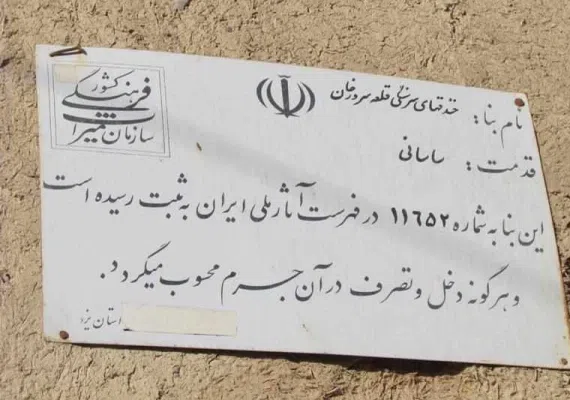 سازمان میراث فرهنگی کشور
نام بنا: خندقهای سرسنگی قلعه سردرخان
قدمت: ساسانی
این بنا به شماره ۱۱۶۵۲ در فهرست آثار ملی ایران به ثبت رسیده است
و هرگونه دخل و تصرف در آن جرم محسوب میگردد.
استان یزد